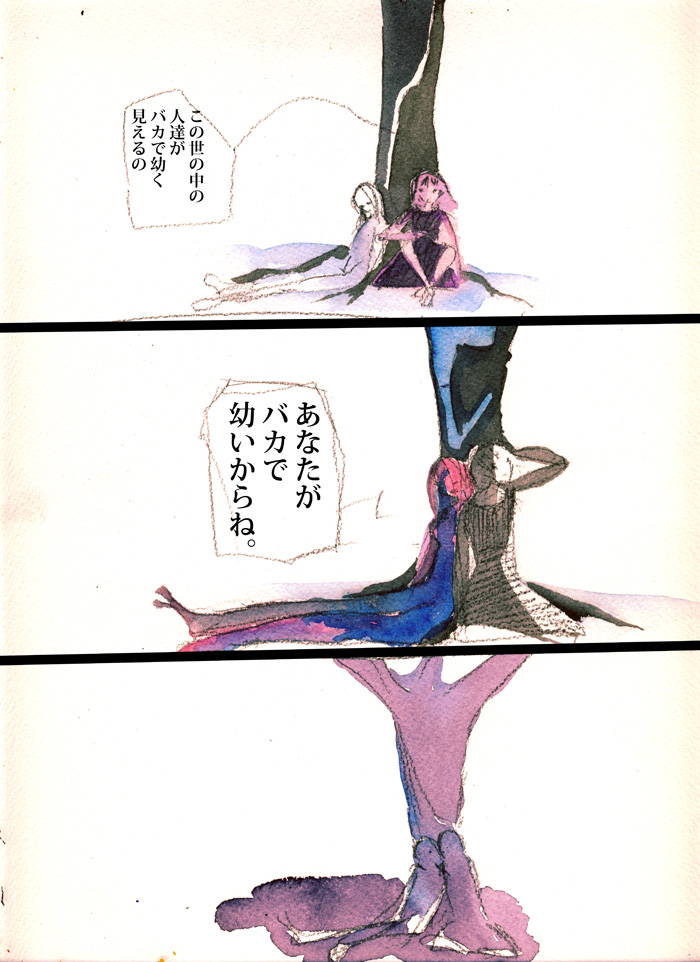 この世の中の
人達が
バカで幼く
見えるの
あなたが
バカで
幼いからね。